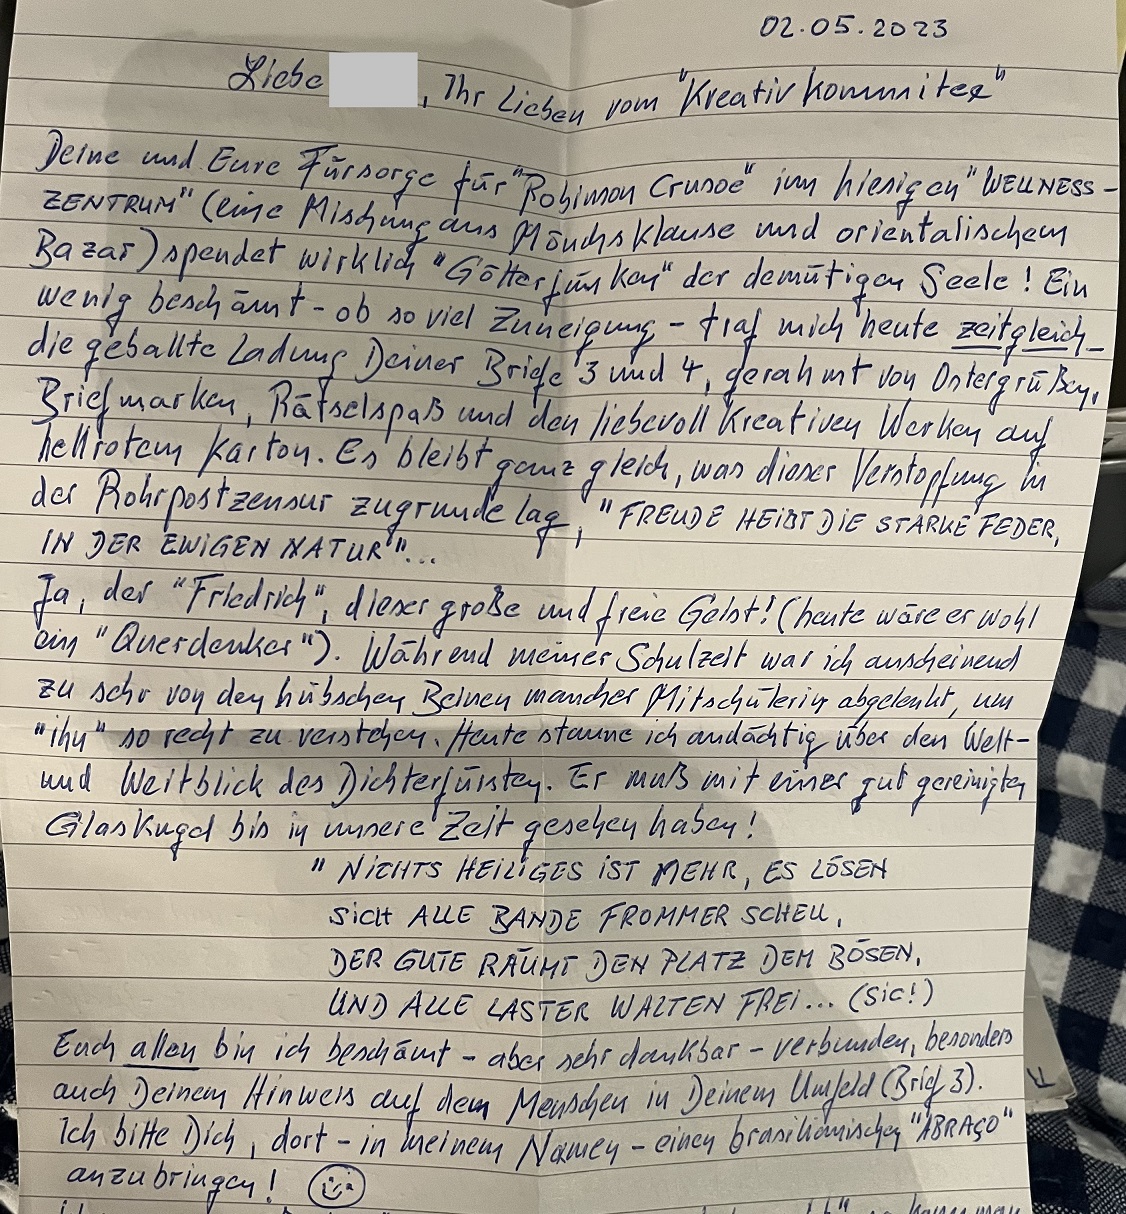 02.05.2023
Liebe , Ihr Lieben vom "Kreativkommitee"
Deine und Eure Fürsorge für "Robinson Crusoe" im hiesigen "WELLNESS-
ZENTRUM" (eine Mischung aus Mönchsklause und orientalischem
Bazar) spendet wirklich "Götterfunken" der demütigen Seele! Ein
wenig beschämt - ob so viel Zuneigung - traf mich heute zeitgleich
die geballte Ladung Deiner Briefe 3 und 4, gerahmt von Ostergrüßen,
Briefmarken, Rätselspaß und den liebevoll kreativen Werken auf
hellrotem Karton. Es bleibt ganz gleich, was dieser Verstopfung in
der Rohrpostzensur zugrunde lag, "FREUDE HEIßT DIE STARKE FEDER,
IN DER EWIGEN NATUR"...
Ja, der "Friedrich", dieser große und freie Geist! (heute wäre er wohl
ein "Querdenker"). Während meiner Schulzeit war ich anscheinend
zu sehr von den hübschen Beinen mancher Mitschülerin abgelenkt, um
"ihn" so recht zu verstehen. Heute staune ich andächtig über den Welt-
und Weitblick des Dichterfürsten. Er muß mit einer gut gereinigten
Glaskugel bis in unsere Zeit gesehen haben!
"NICHTS HEILIGES IST MEHR, ES LÖSEN
SICH ALLE BANDE FROMMER SCHEU,
DER GUTE RÄUMT DEN PLATZ DEM BÖSEN,
UND ALLE LASTER WALTEN FREI... (SIC!)
Euch allen bin ich beschämt - aber sehr dankbar - verbunden, besonders
auch Deinem Hinweis auf dem Menschen in Deinem Umfeld (Brief 3).
Ich bitte Dich, dort - in meinem Namen - einen brasilianischen "ABRAÇO"
anzubringen!